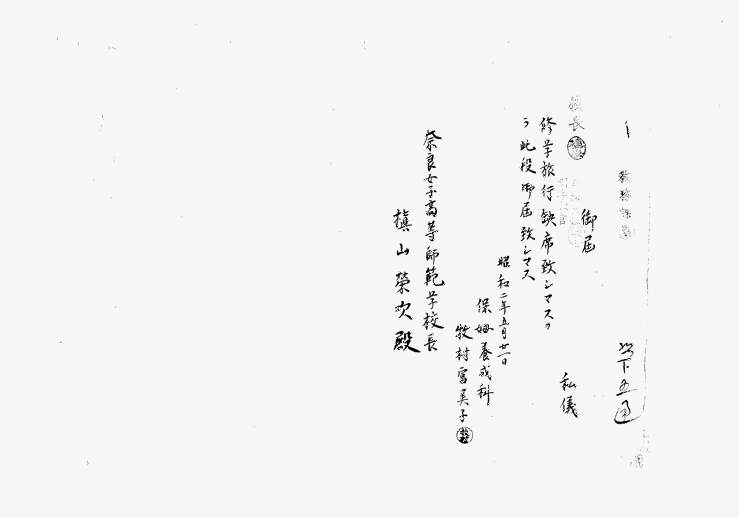 以下五通
校長
御届
私儀
修学旅行缺席致シマスカ
ラ此段御届致シマス
昭和二年五月廿一日
保姆養成科
牧村富美子
奈良女子高等師範学校長
槇山榮次殿